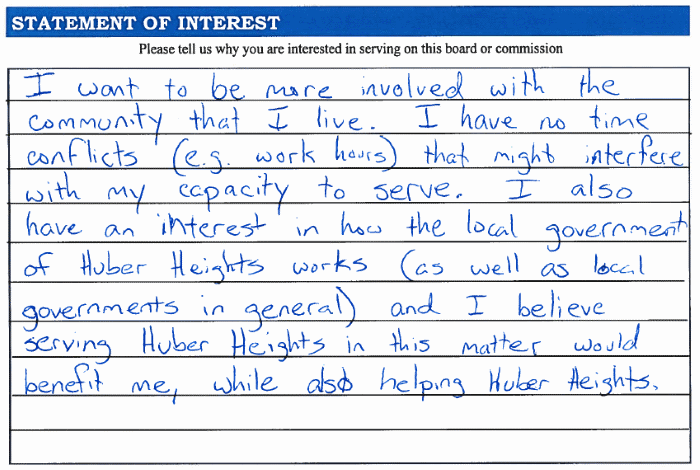 STATEMENT OF INTEREST
Please tell us why you are interested in serving on this board or commission
I want to be more involved with the
community that I live. I have no time
conflicts (e.g. work hours) that might interfere
with my capacity to serve. I also
have an interest in how the local government
of Huber Heights works (as well as local
governments in general) and I believe
serving Huber Heights in this matter would
benefit me, while also helping Huber Heights.